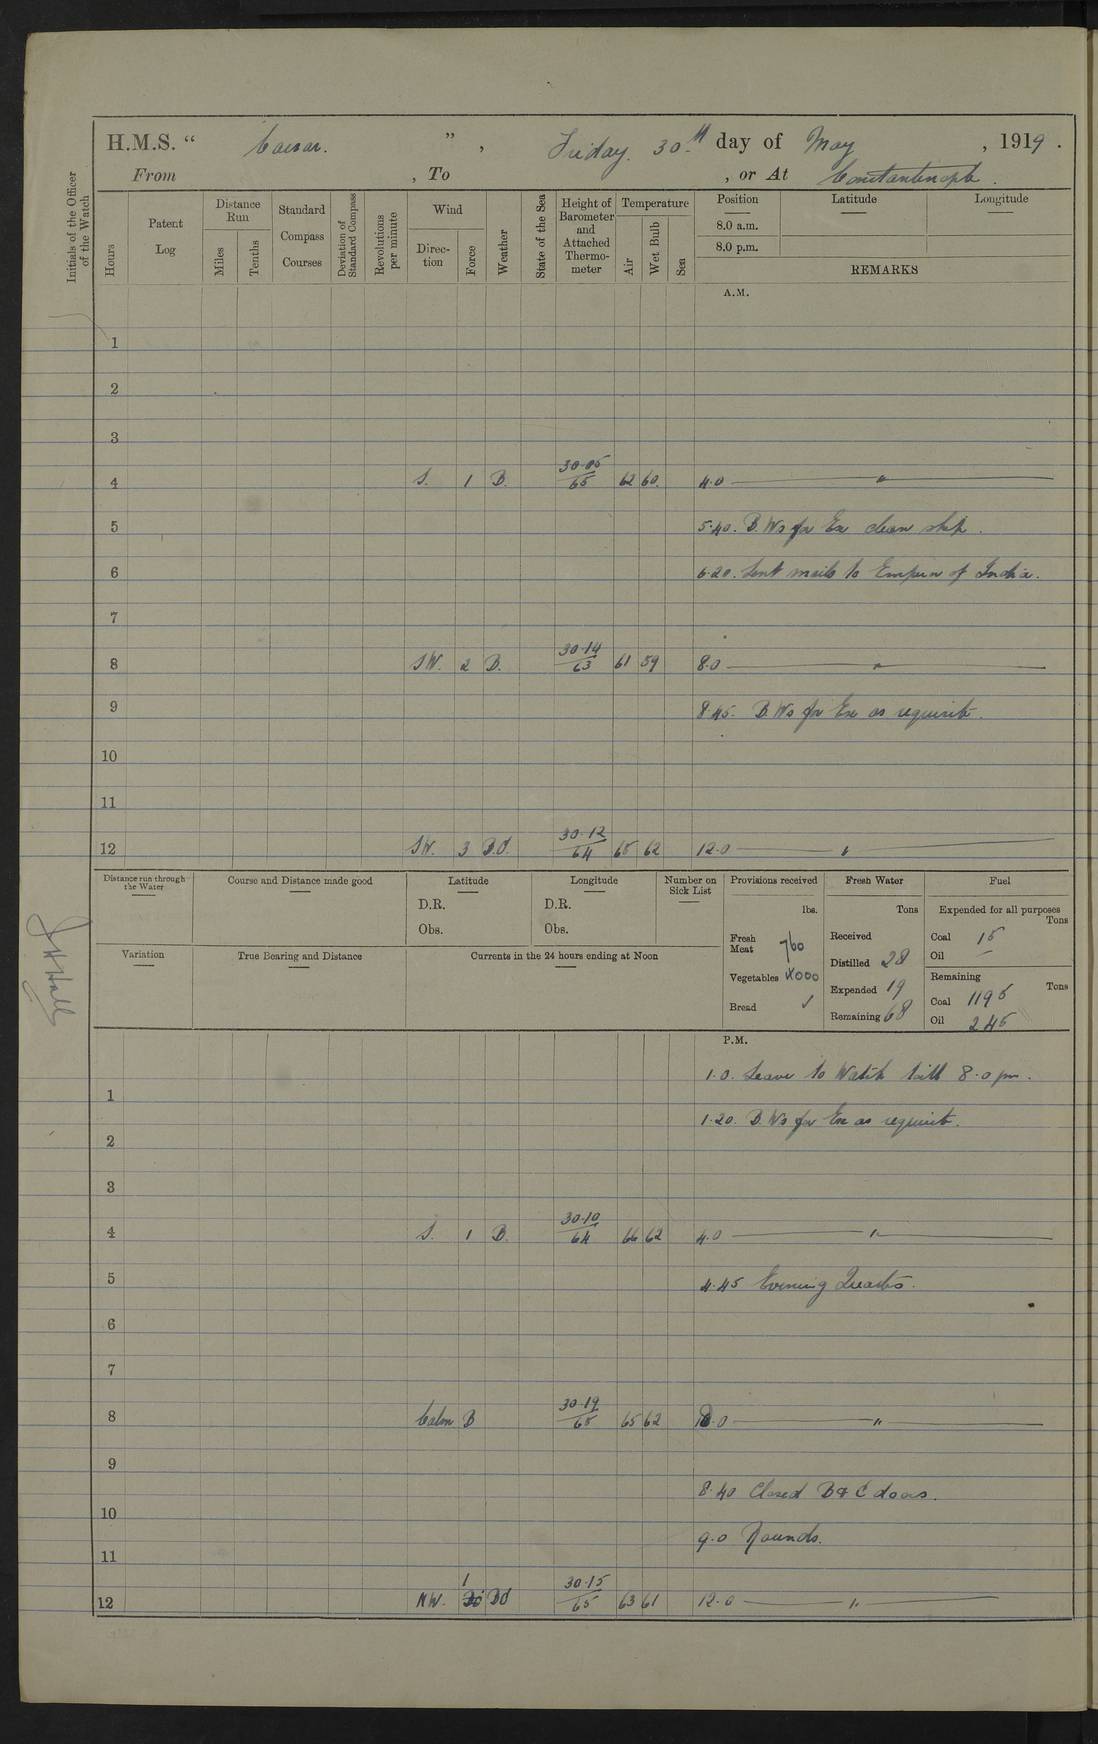 H.M.S. “ Caesar. ” , Friday. 30.th day of May , 1919 .
From , To , or At Constantinople .
Initials of the Officer of the Watch
Hours
Patent Log
Distance Run
Miles
Tenths
Standard Compass Courses
Deviation of Standard Compass
Revolutions per minute
Wind
Direction
Force
Weather
State of the Sea
Height of Barometer and Attached Thermometer
Temperature
Air
Wet Bulb
Sea
Position Latitude Longitude
8.0 a.m.
8.0 p.m.
REMARKS
A.M.
1
2
3
4 S. 1 B. 30·05/65 62 60. 4.0 "
5 5·40. B. Ws for Ex clean ship.
6 6·20. Sent mails to Emperor of India.
7
8 SW. 2 B. 30·14/63 61 59 8·0 "
9 8·45. B. Ws for Ex as requisite.
10
11
12 SW. 3 B.C. 30·12/64 65 62 12·0 "
Distance run through the Water
Course and Distance made good
Latitude
D.R.
Obs.
Longitude
D.R.
Obs.
Number on Sick List
Provisions received
lbs.
Fresh Meat 760
Vegetables
Bread
Fresh Water
Tons
Received
Distilled 28
Expended 19
Remaining 68
Fuel
Expended for all purposes
Tons
Coal 15
Oil –
Remaining
Tons
Coal 1195
Oil 245
Variation
True Bearing and Distance
Currents in the 24 hours ending at Noon
J H Hall
P.M.
1·0. Leave to Watch till 8·0 pm.
1
1·20. B. Ws for Ex as requisite.
2
3
4 S. 1 B. 30·10/64 66 62 4·0 "
5 4·45 Evening Quarters.
6
7
8 Calm B 30·19/65 65 62 8·0 "
9
8·40 Closed B & C doors.
10
9·0 Rounds.
11
12 NW. 1 BC 30·15/65 63 61 12·0 "